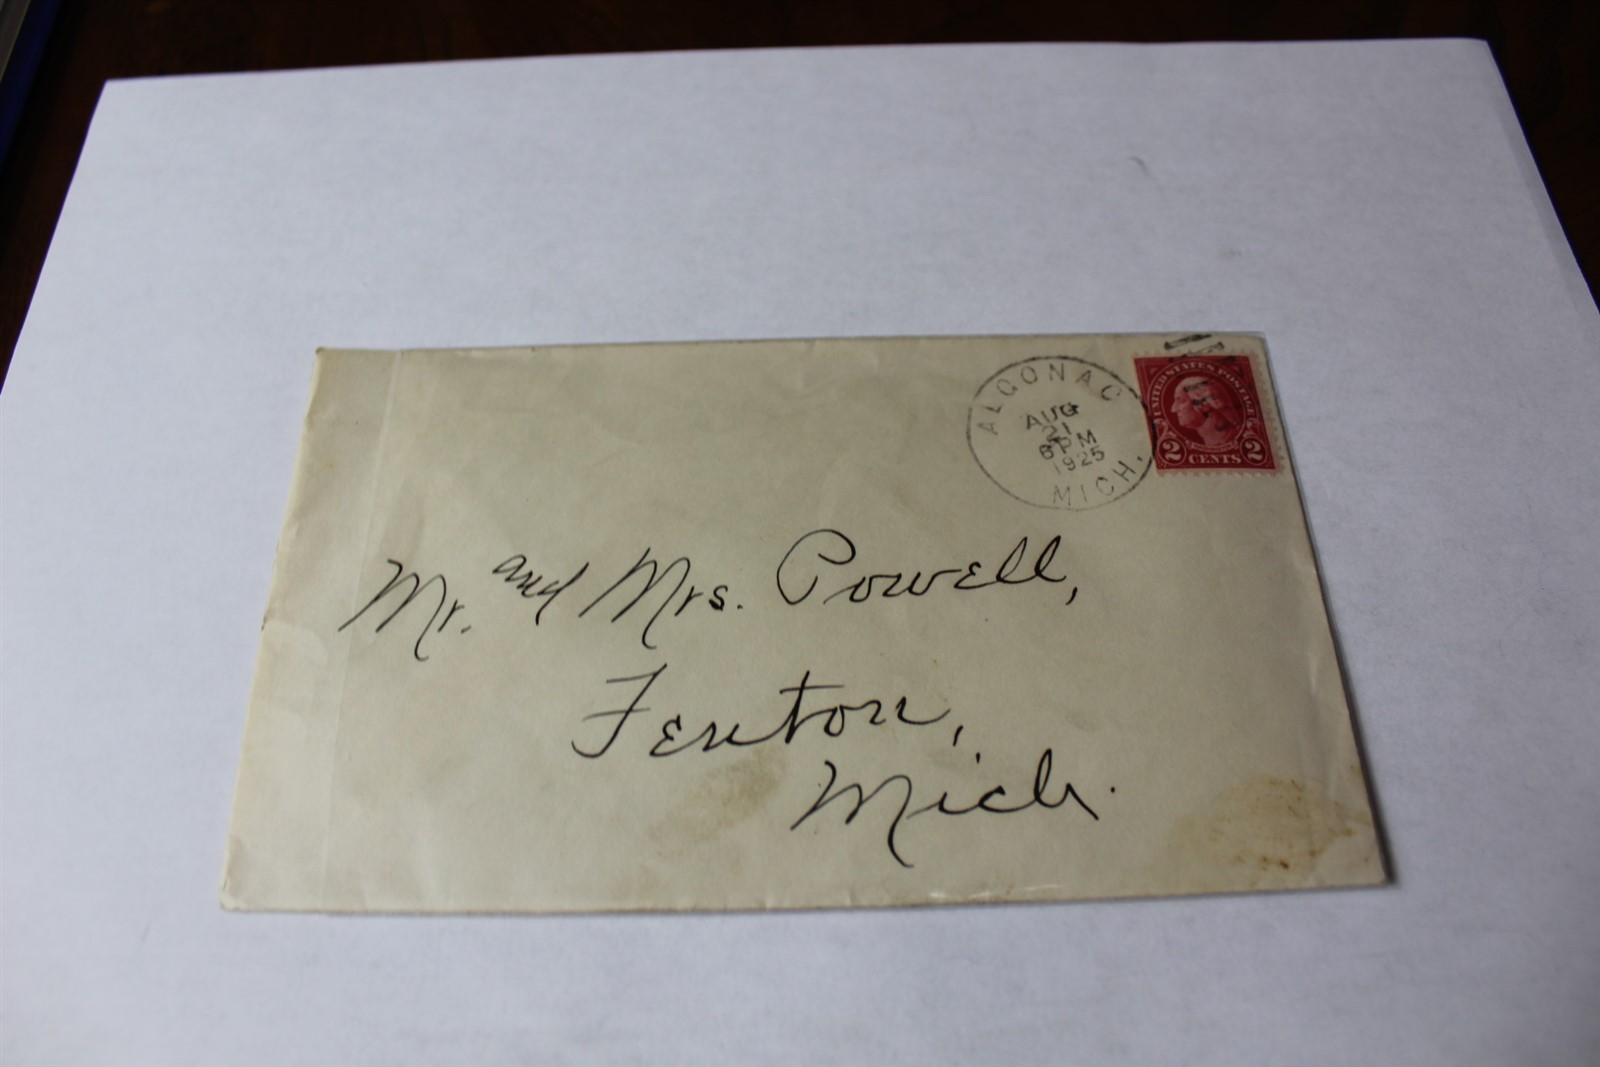 ALGONAC
AUG
21
6 PM
1925
MICH.
UNITED STATES POSTAGE
2 CENTS 2
Mr. and Mrs. Powell,
Fenton,
Mich.